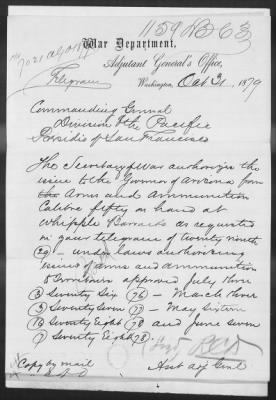 1159 B 63
7021 AGO 1879
Telegram
War Department,
Adjutant General's Office,
Washington, Oct 31, 1879
Commanding General
Division of the Pacific
Presidio of San Francisco
The Secretary of War authorizes the
issue to the Governor of Arizona from
the Arms and Ammunition
Calibre fifty on hand at
Whipple Barracks as requested
in your telegram of twenty ninth
(29) - under laws authorizing
issues of arms and ammunition
to Governors approved July three
(3) Seventy Six (76) - March three
(3) Seventy Seven (77) - May sixteen
(16) Seventy Eight (78) and June seven
(7) Seventy Eight (78).
Copy by mail
Asst Adj Genl